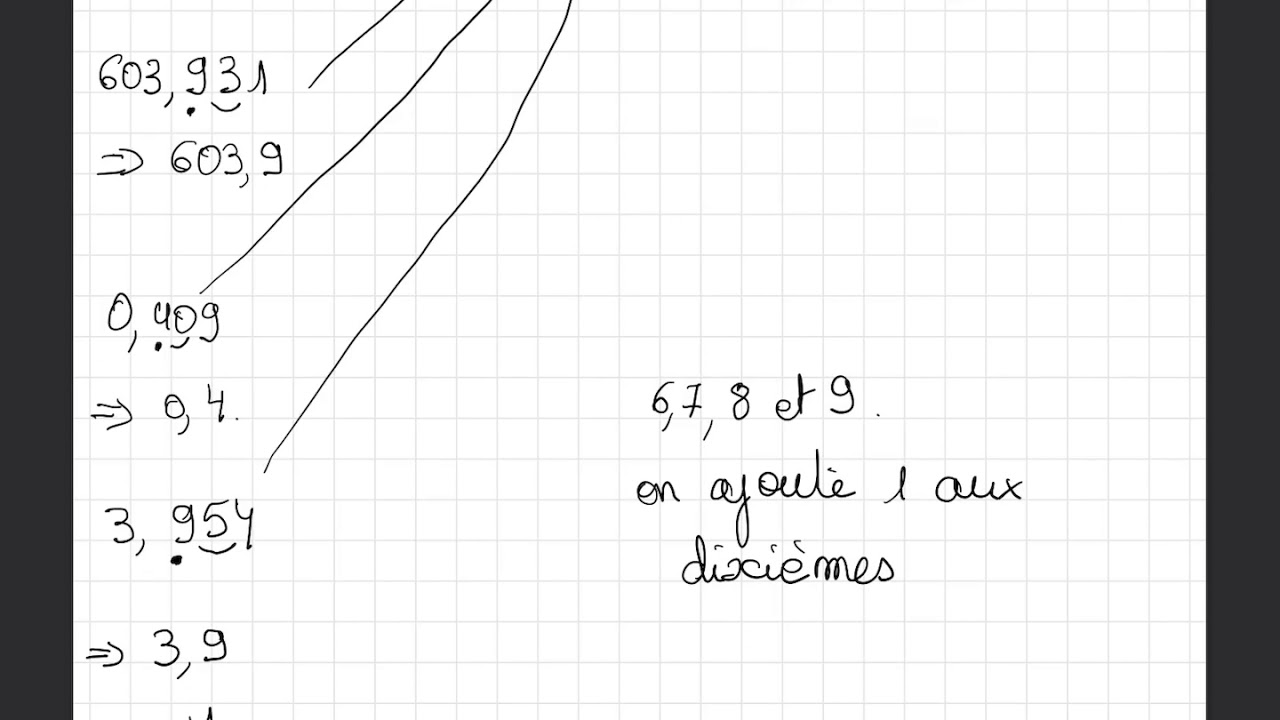 603,931
⇒ 603,9
0,409
⇒ 0,4.
3,954
⇒ 3,9
6,7,8 et 9.
on ajoute 1 aux
dixièmes